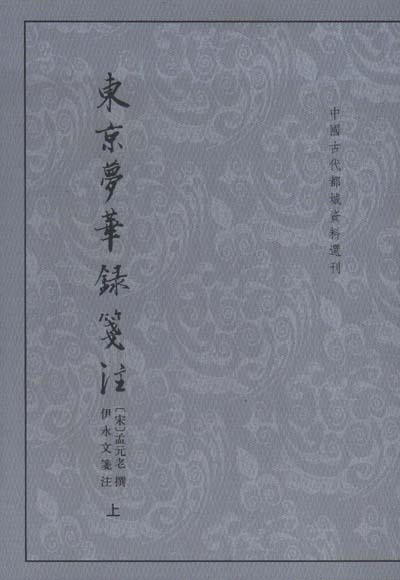 中國古代都城資料選刊
東京夢華録箋注
〔宋〕孟元老 撰
伊永文箋注
上